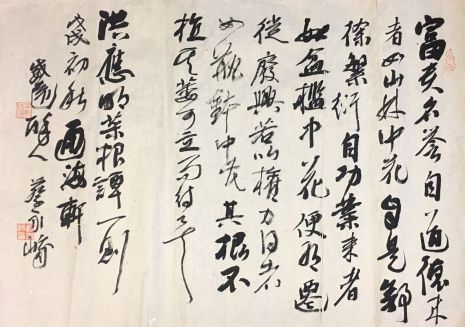 富貴名譽自道德來
者如山林中花自是舒
徐繁衍自功業來者
如盆檻中花便有遷
徙廢興若以權力得者
如瓶鉢中花其根不
植其萎可立而待矣
洪應明菜根譚一則
戊戌初秋 海軒
人 蔡